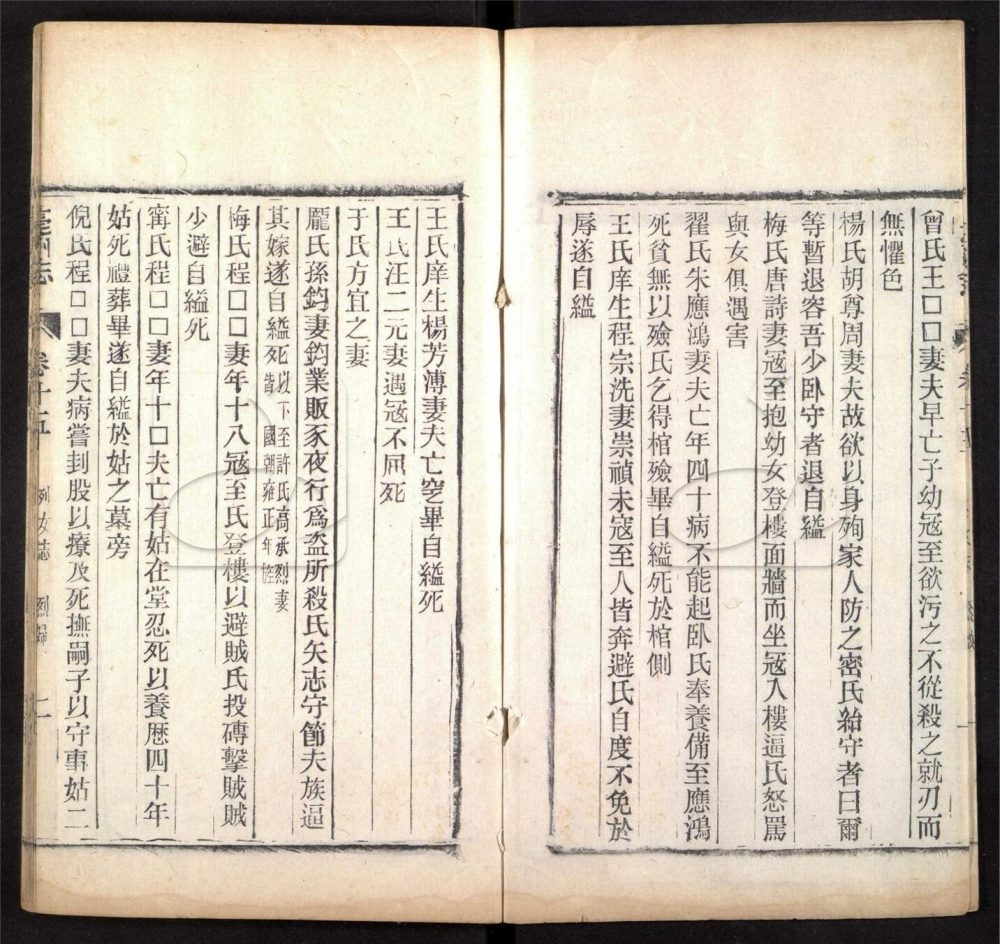 曾氏王□□妻夫早亡子幼寇至欲污之不從殺之就刃而
無懼色
楊氏胡尊周妻夫故欲以身殉家人防之密氏紿守者曰爾
等暫退容吾少卧守者退自縊
梅氏唐詩妻寇至抱幼女登樓面牆而坐寇入樓逼氏怒罵
與女俱遇害
翟氏朱應鴻妻夫亡年四十病不能起卧氏奉養備至應鴻
死貧無以殮氏乞得棺殮畢自縊死於棺側
王氏庠生程宗洗妻崇禎末寇至人皆奔避氏自度不免於
辱遂自縊
王氏庠生楊芳溥妻夫亡窆畢自縊死
王氏汪二元妻遇寇不屈死
于氏方宜之妻
龐氏孫鈞妻鈞業販豕夜行爲盜所殺氏矢志守節夫族逼
其嫁遂自縊死以下至許氏高承烈妻皆 國朝雍正年旌
梅氏程□□妻年十八寇至氏登樓以避賊氏投磚擊賊賊
少避自縊死
甯氏程□□妻年十□夫亡有姑在堂忍死以養歷四十年
姑死禮葬畢遂自縊於姑之墓旁
倪氏程□□妻夫病嘗刲股以療及死撫嗣子以守事姑二
亳州志 卷十五 列女志 烈婦 二